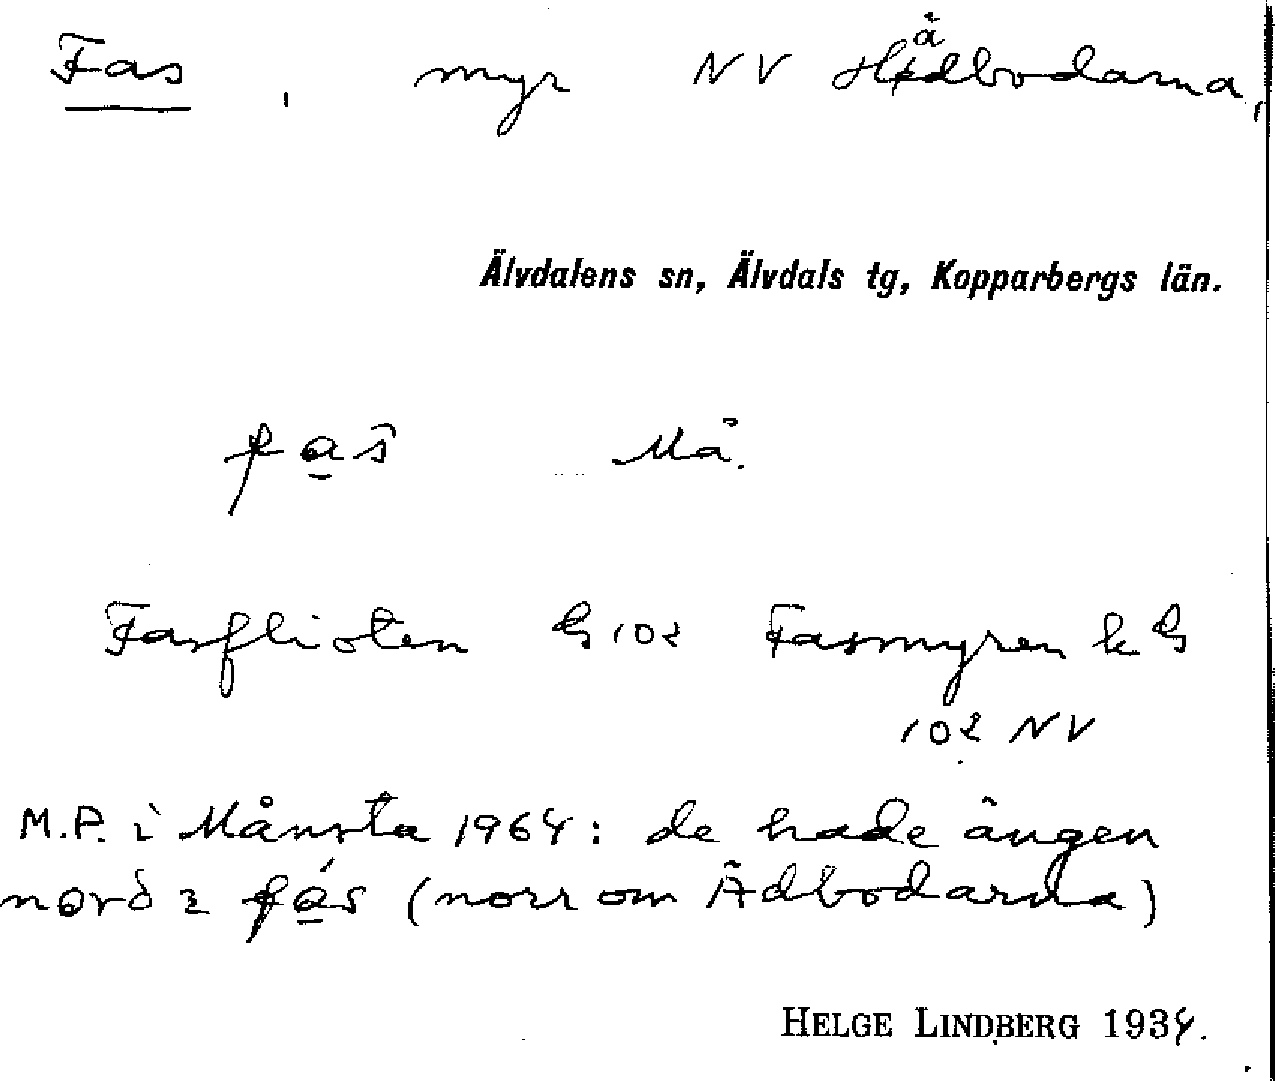 Fas, myr NV Hådbodarna,
Älvdalens sn, Älvdals tg, Kopparbergs län.
fas̑ Må.
Fasflioten G 102 Fasmyren k G
102 NV
M.P. i Månsta 1964: de hade ängen
nord i fás (norr om Ädbodarna)
HELGE LINDBERG 1934.